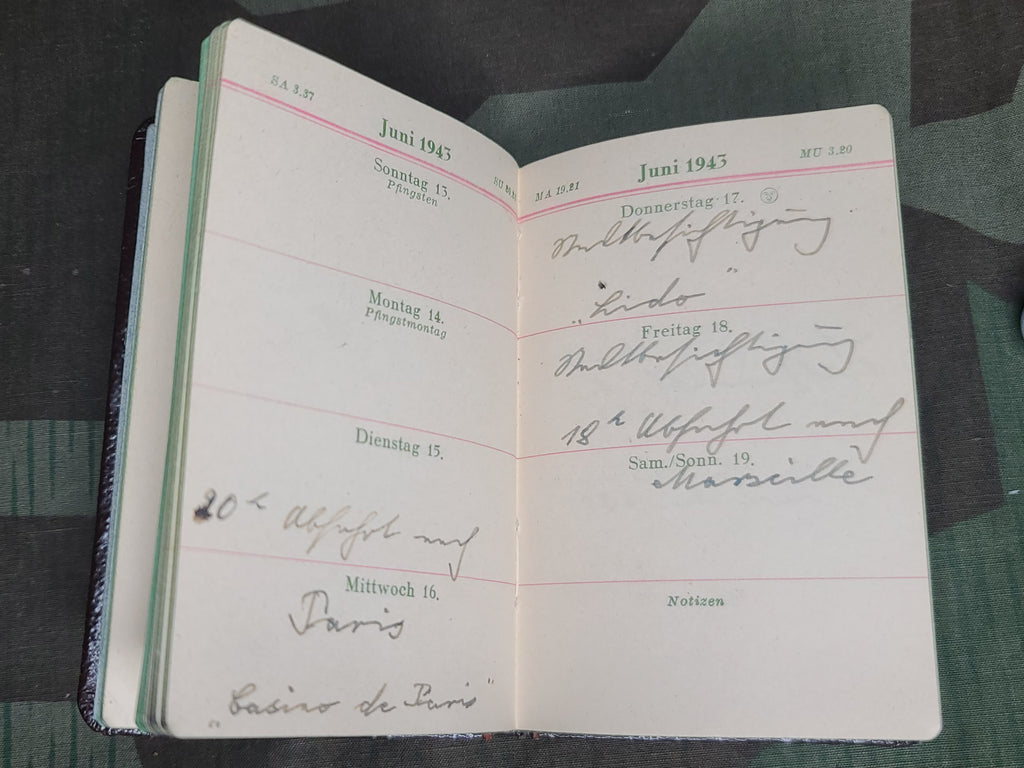 SA 3.37
Juni 1943
Sonntag 13.
Pfingsten
Montag 14.
Pfingstmontag
Dienstag 15.
20 h Abfahrt nach
Mittwoch 16.
Paris
„Casino de Paris"
MA 19.21
Juni 1943
MU 3.20
Donnerstag 17.
Stadtbesichtigung
„Lido"
Freitag 18.
Stadtbesichtigung
18 h Abfahrt nach
Sam./Sonn. 19.
Marseille
Notizen